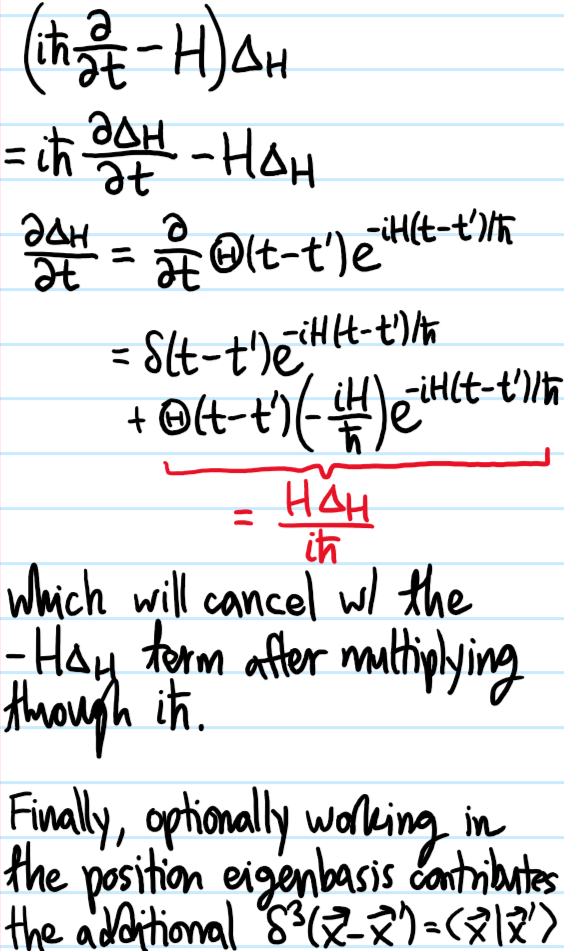 (iħ ∂/∂t − H)Δ_H
= iħ ∂Δ_H/∂t − HΔ_H
∂Δ_H/∂t = ∂/∂t Θ(t−t')e^{−iH(t−t')/ħ}
= δ(t−t')e^{−iH(t−t')/ħ}
+ Θ(t−t')(−iH/ħ)e^{−iH(t−t')/ħ}
= HΔ_H/iħ
which will cancel w/ the
−HΔ_H term after multiplying
through iħ.
Finally, optionally working in
the position eigenbasis contributes
the additional δ³(x⃗−x⃗')=⟨x⃗|x⃗'⟩